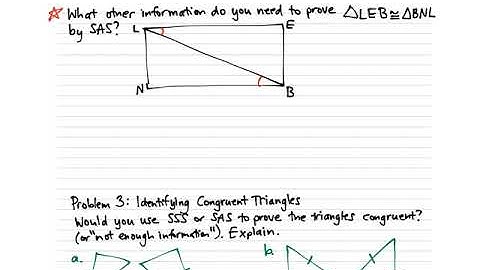 ☆ What other information do you need to prove △LEB≅△BNL
by SAS?
L E
N B
Problem 3: Identifying Congruent Triangles
Would you use SSS or SAS to prove the triangles congruent?
(or "not enough information"). Explain.
a. b.